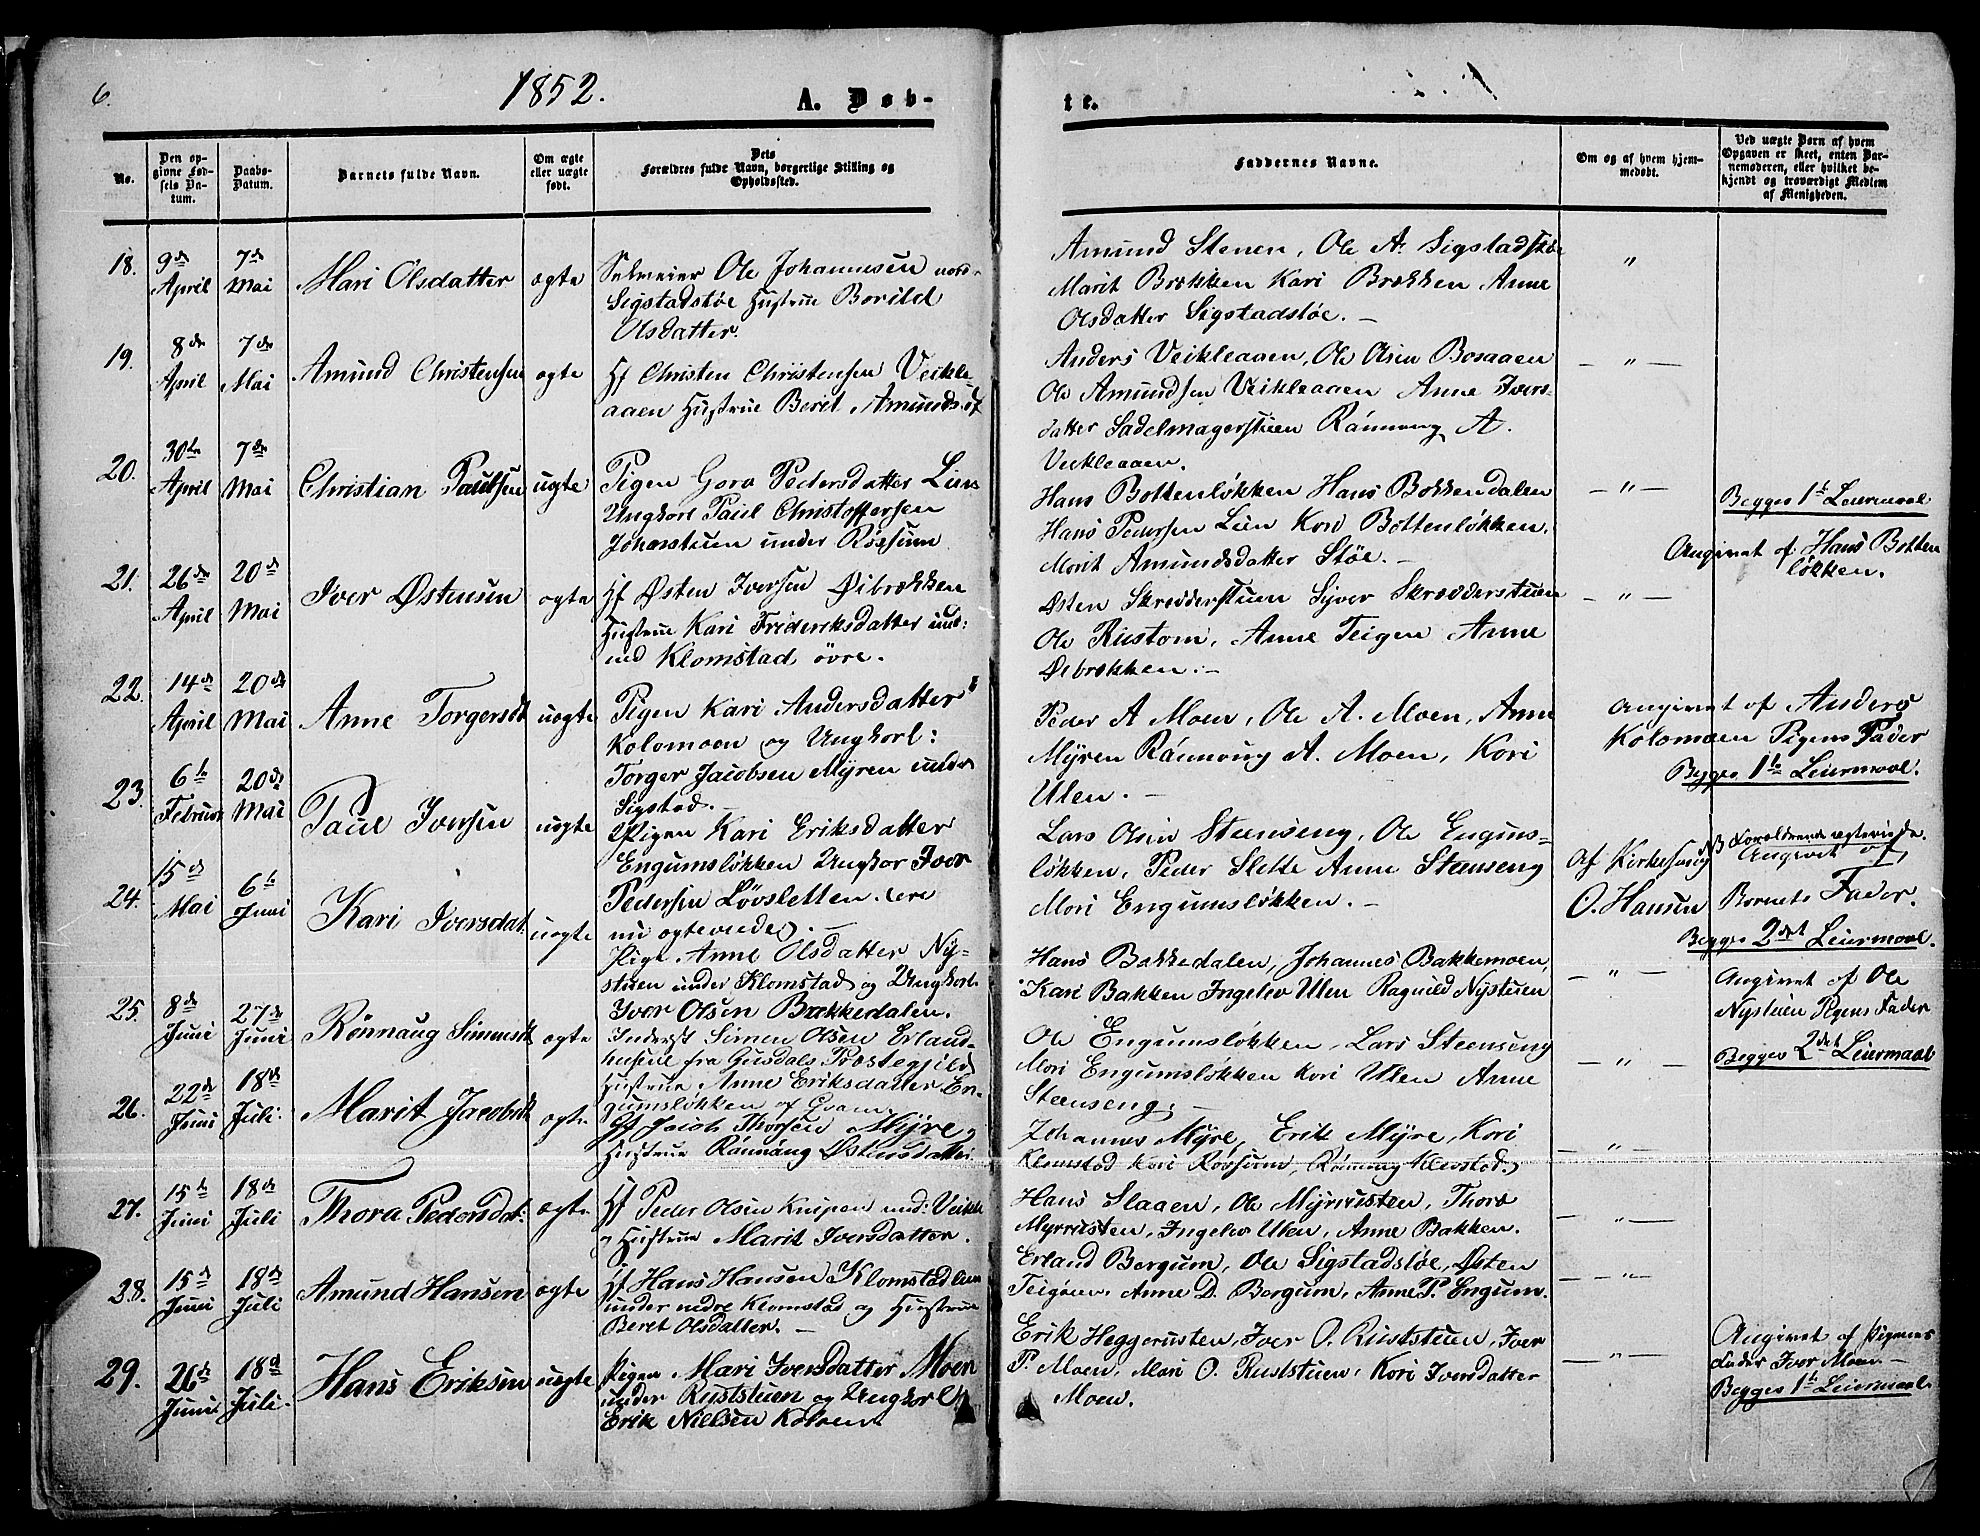 6.
1852.
A. Døb-
te.
No.
Den op-
givne Fød-
sels Da-
tum.
Daabs-
Datum.
Barnets fulde Navn.
Om ægte
eller uægte
født.
Dets
Forældres fulde Navn, borgerlige Stilling og
Opholdssted.
Faddernes Navne.
Om og af hvem hjem-
medøbt.
Ved uægte Børn af hvem
Opgaven er skeet, enten Bar-
nemoderen, eller hvilket be-
kjendt og troværdigt Medlem
af Menigheden.
18. 9de April 7de Mai Mari Olsdatter ægte
Selveier Ole Johannesen nord-
Sigstadstøe Hustrue Borild
Olsdatter.
Amund Stenen, Ole A. Sigstadstøe
Marit Brækken Kari Brækken Anne
Olsdatter Sigstadstøe. –
"
19. 8de April 7de Mai Amund Christensen ægte
Hf Christen Christensen Veikle-
aaen Hustrue Beret Amundsd
Anders Veikleaaen, Ole Olsen Bosaaen
Ole Amundsen Veikleaaen Anne Ivers-
datter Sadelmagerstuen Rønnoug A.
Veikleaaen.
– " –
20. 30te April 7de Mai Christian Paulsen uægte
Pigen Goro Pedersdatter Lien
Ungkarl Paul Christoffersen
under Røssum
Hans Bottenløkken Hans Bakkendalen
Hans Pedersen Lien Kari Bottenløkken.
Marit Amundsdatter Støe. –
– " –
Begges 1te Leiermaal
Angivet af Hans Botten
løkken.
21. 26de April 20de Mai Iver Østensen ægte
Hf Østen Iversen Øibrækken
Hustrue Kari Frideriksdatter und:
Klomstad øvre.
Østen Skrædderstuen Syver Skrædderstuen
Ole Rustom, Anne Teigen Anne
Øibrækken. –
– " –
22. 14de April 20de Mai Anne Torgersdt uægte
Pigen Kari Andersdatter
Kolomoen og Ungkarl:
Torger Jacobsen Myren under
Sigstad. –
Peder A Moen, Ole A. Moen, Anne
Myren Rønnoug A. Moen, Kari
Ulen. –
Angivet af Anders
Kolomoen Pigens Fader
Begges 1te Leiermaal.
23. 6te Februar 20de Mai Paul Iversen uægte
Pigen Kari Eriksdatter
Engumsløkken Ungkar Iver
Pedersen Løvsletten. (ere
nu ægteviede). –
Lars Olsen Steenseng, Ole Engums-
løkken, Peder Slette Anne Steenseng
Mari Engumsløkken. –
Af Kirkesang
O. Hansen
NB Forældrene ægteviede.
Angivet af
Bornets Fader.
Begges 2det Leiermaal.
24. 15de Mai 6te Juni Kari Iversdat. uægte
Pige. Anne Olsdatter Ny-
stuen under Klomstad og Ungkarl
Iver Olsen Bakkedalen.
Hans Bakkedalen, Johannes Bakkemoen,
Kari Bakken Ingelev Ulen Ragnild Nystuen
– " –
Angivet af Ole
Nystuen Pigens Fader
Begges 2det Leiermaal
25. 8de Juni 27de Juni Rönnaug Simensdt ægte
Inderst Simen Olsen Erland-
husene fra Gusdals Præstegjeld
Hustrue Anne Eriksdatter En-
gumsløkken af Qvam.
Ole Engumsløkken, Lars Steenseng
Mari Engumsløkken Kari Ulen Anne
Steenseng. –
– " –
26. 22de Juni 18de Juli. Marit Jacobsdt ægte
Hf Jacob Thorsen Myre,
Hustrue Rønnaug Østensdatter
Johannes Myre, Erik Myre, Kari
Klomstad Kari Røssum, Rønnoug Klevstad,
– " –
27. 15de Juni 18de Juli Thora Pedersdat: ægte
Hf Peder Olsen Kneipen und: Veikle
Hustrue Marit Iversdatter.
Hans Slaaen, Ole Myrrusten, Thore
Myrrusten, Ingelev Ulen, Anne Bakken.
– " –
28. 15de Juni 18de Juli Amund Hansen ægte
Hf Hans Hansen Klomstadlien
under nedre Klomstad og Hustrue
Beret Olsdatter. –
Erland Bergum, Ole Sigstadstøe, Østen
Teigøien, Anne D. Bergum, Anne P. Engum.
– " –
29. 26de Juni 18de Juli. Hans Eriksen uægte
Pigen Mari Iversdatter Moen
under Ruststuen og Ungkarl
Erik Nielsen
Erik Heggerusten, Iver O. Ruststuen, Iver
P. Moen, Mari O. Ruststuen, Kari Iversdatter
Moen.
– " –
Angivet af Pigenes
Fader Iver Moen –
Begges 1te Leiermaal.